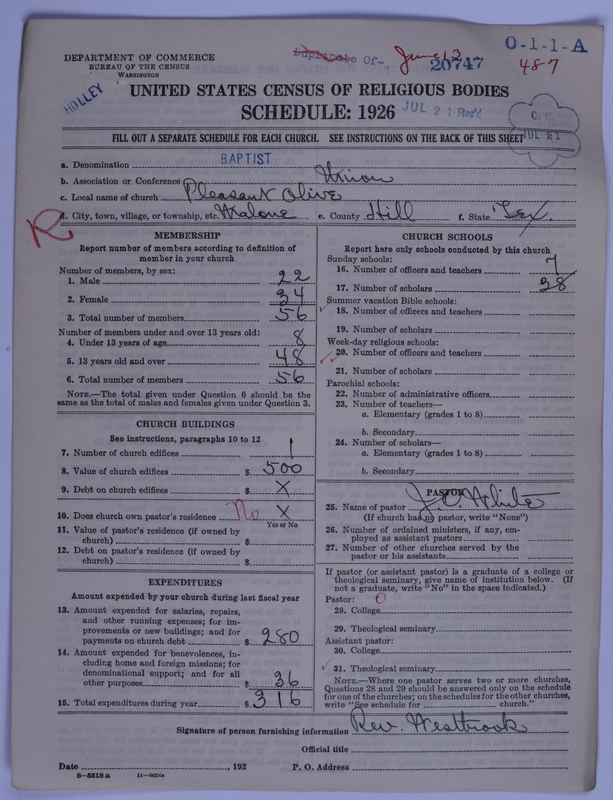 DEPARTMENT OF COMMERCE
BUREAU OF THE CENSUS
WASHINGTON
Duplicate Of- June 13
20747
O-1-1-A
487
HOLLEY
UNITED STATES CENSUS OF RELIGIOUS BODIES
SCHEDULE: 1926
JUL 21 Rec'd
C. C.
JUL 21
FILL OUT A SEPARATE SCHEDULE FOR EACH CHURCH. SEE INSTRUCTIONS ON THE BACK OF THIS SHEET
a. Denomination BAPTIST
b. Association or Conference Union
c. Local name of church Pleasant Olive
d. City, town, village, or township, etc. Malone e. County Hill f. State Tex.
R
MEMBERSHIP
Report number of members according to definition of
member in your church
Number of members, by sex:
1. Male 22
2. Female 34
3. Total number of members 56
Number of members under and over 13 years old:
4. Under 13 years of age 8
5. 13 years old and over 48
6. Total number of members 56
NOTE.—The total given under Question 6 should be the
same as the total of males and females given under Question 3.
CHURCH BUILDINGS
See instructions, paragraphs 10 to 12
7. Number of church edifices 1
8. Value of church edifices $ 500
9. Debt on church edifices $ X
10. Does church own pastor's residence No X
Yes or No
11. Value of pastor's residence (if owned by
church) $
12. Debt on pastor's residence (if owned by
church) $
EXPENDITURES
Amount expended by your church during last fiscal year
13. Amount expended for salaries, repairs,
and other running expenses; for im-
provements or new buildings; and for
payments on church debt $ 280
14. Amount expended for benevolences, in-
cluding home and foreign missions; for
denominational support; and for all
other purposes $ 36
15. Total expenditures during year $ 316
CHURCH SCHOOLS
Report here only schools conducted by this church
Sunday schools:
16. Number of officers and teachers 7
17. Number of scholars 38
Summer vacation Bible schools:
18. Number of officers and teachers
19. Number of scholars
Week-day religious schools:
20. Number of officers and teachers
21. Number of scholars
Parochial schools:
22. Number of administrative officers
23. Number of teachers—
a. Elementary (grades 1 to 8)
b. Secondary
24. Number of scholars—
a. Elementary (grades 1 to 8)
b. Secondary
PASTOR
25. Name of pastor J. C. White
(If church has no pastor, write "None")
26. Number of ordained ministers, if any, em-
ployed as assistant pastors
27. Number of other churches served by the
pastor or his assistants
If pastor (or assistant pastor) is a graduate of a college or
theological seminary, give name of institution below. (If
not a graduate, write "No" in the space indicated.)
Pastor: 0
28. College
29. Theological seminary
Assistant pastor:
30. College
31. Theological seminary
NOTE.—Where one pastor serves two or more churches,
Questions 28 and 29 should be answered only on the schedule
for one of the churches; on the schedules for the other churches,
write "See schedule for church."
Signature of person furnishing information Rev. Westbrook
Official title
Date , 192 P. O. Address
8—5518a 11—9054a